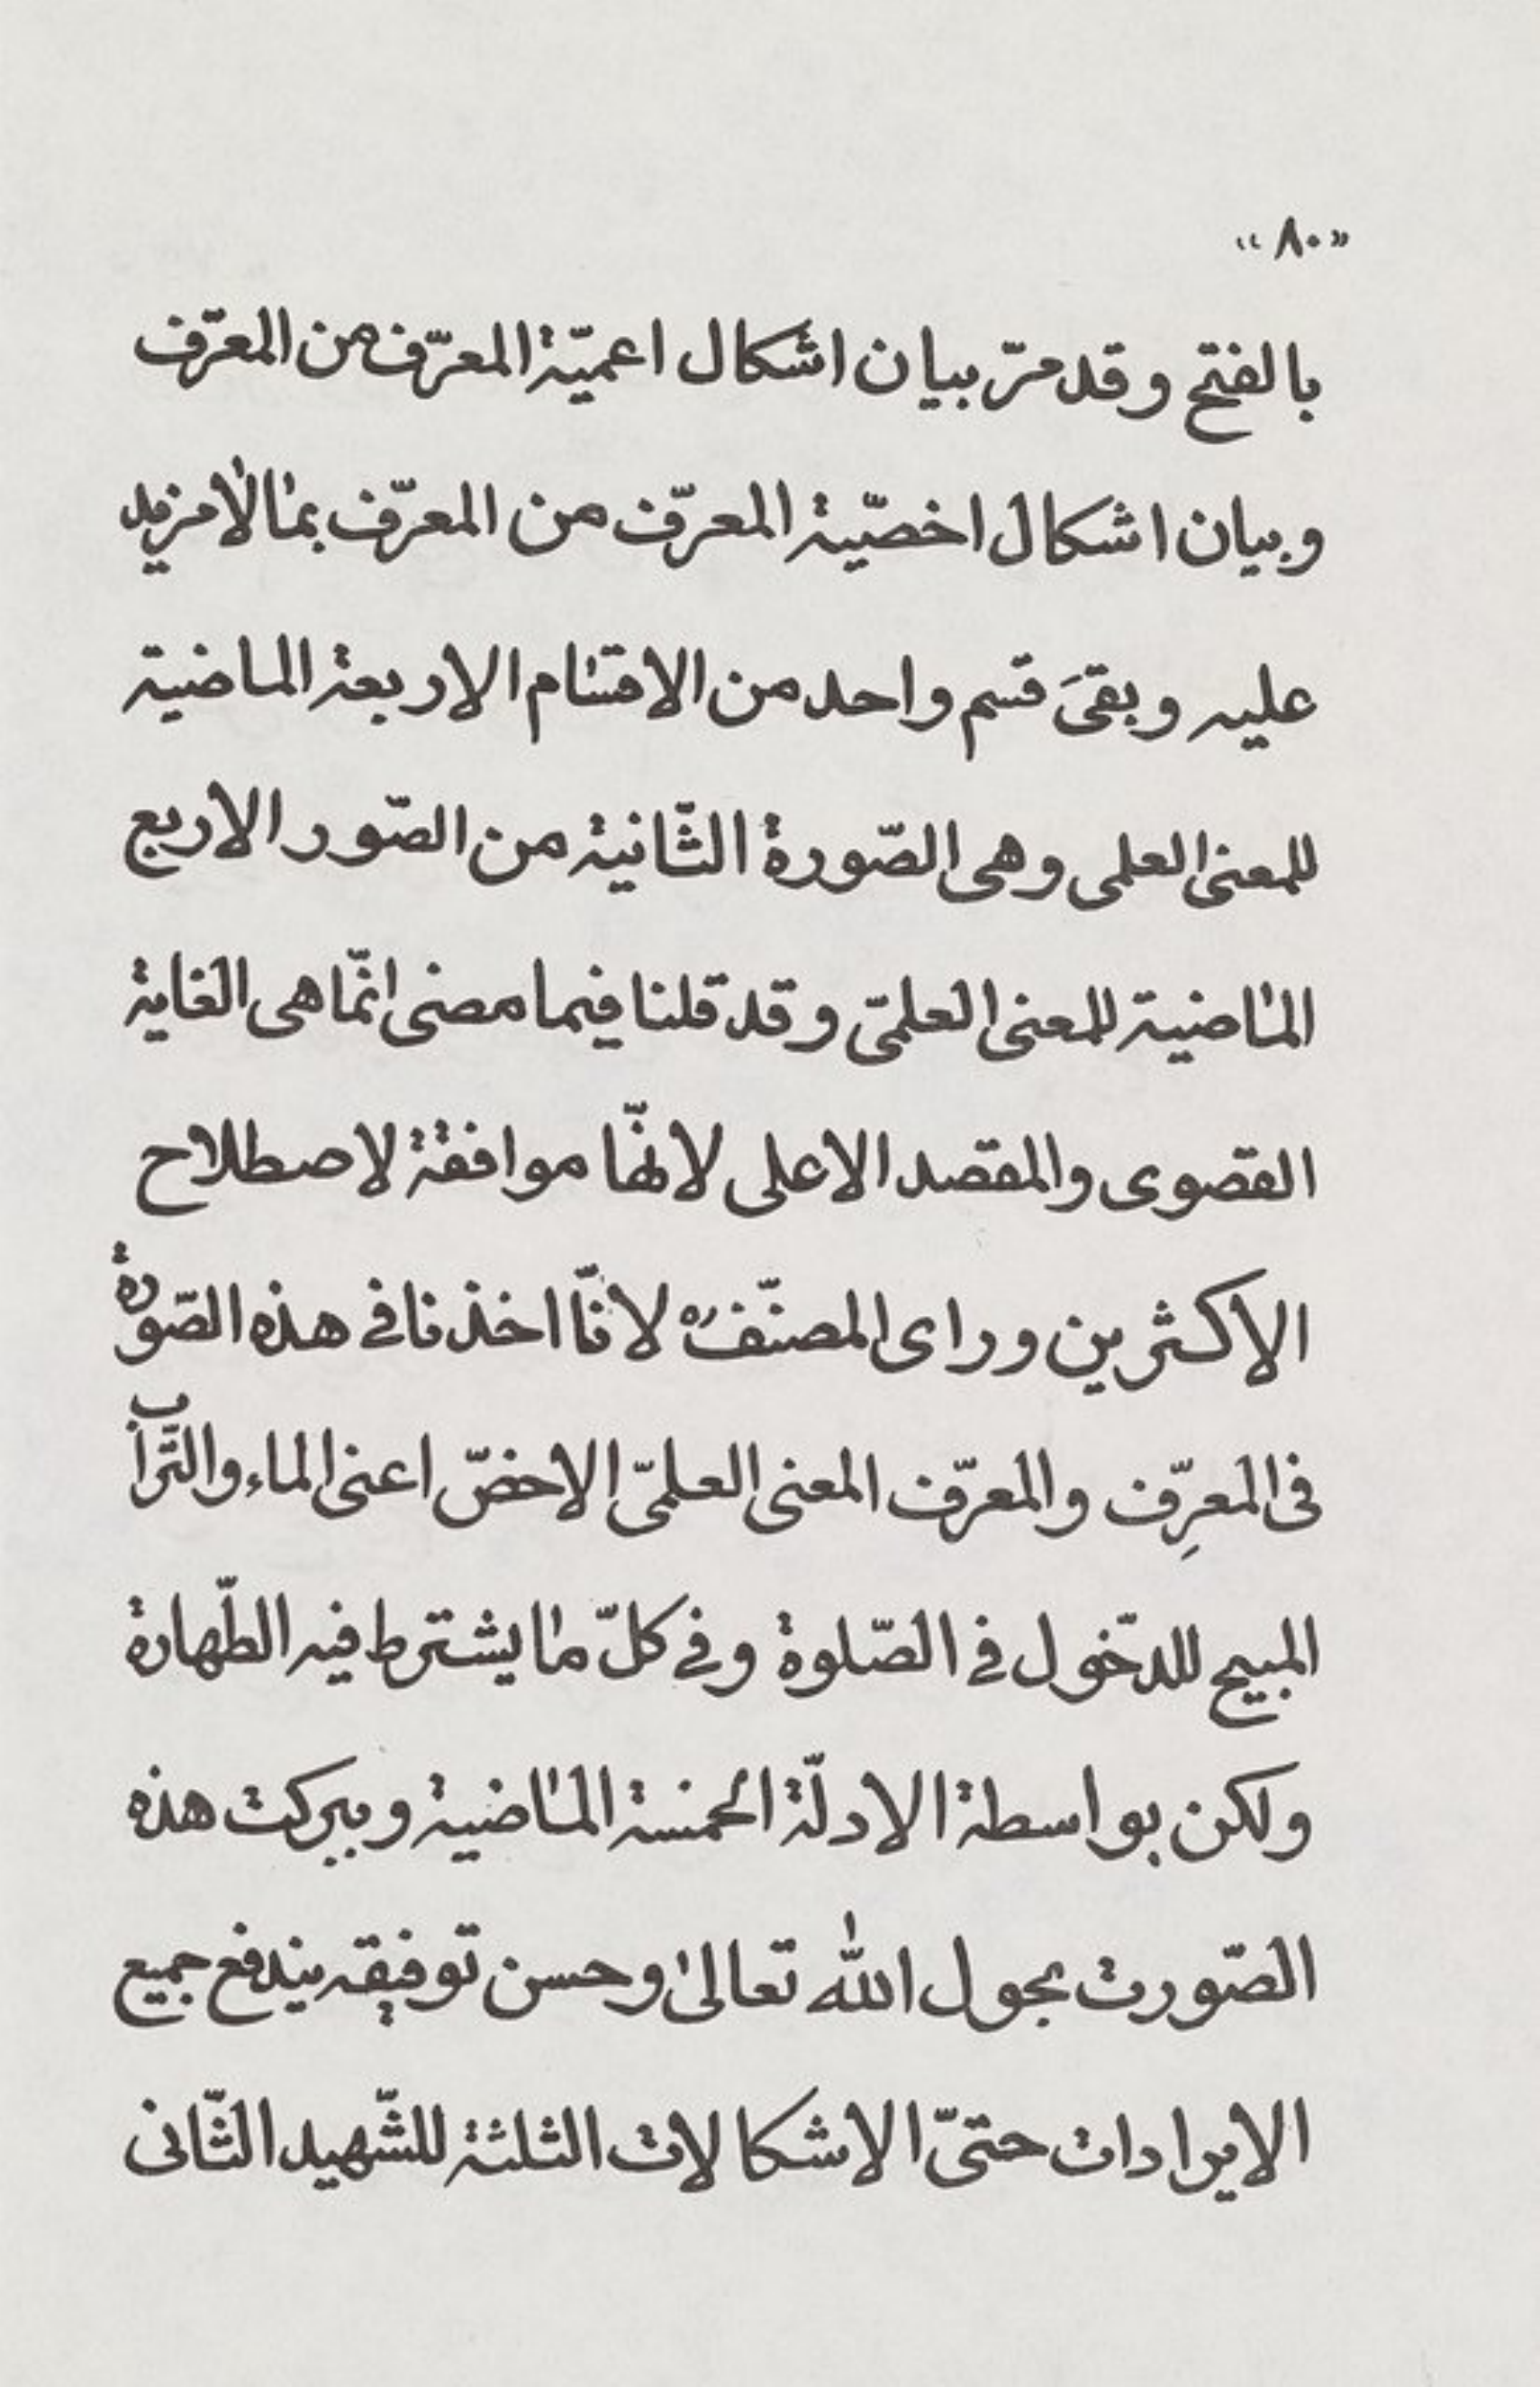 «٨٠»
بالفتح وقد مرّ بيان اشكال اعميّة المعرّف من المعرّف
وبيان اشكال اخصّية المعرّف من المعرّف بما لا مزيد
عليه وبقىَ قسم واحد من الاقسام الاربعة الماضية
للمعنى العلمى وهى الصّورة الثّانية من الصّور الاربع
الماضية للمعنى العلمىّ وقد قلنا فيما مضى انّما هى الغاية
القصوى والمقصد الاعلى لانهّا موافقة لاصطلاح
الاكثرين وراى المصنّفره لانّا اخذنا فى هذه الصّورة
فى المعرِّف والمعرّف المعنى العلمىّ الاخصّ اعنى الماء والتّراب
المبيح للدّخول فى الصّلوة وفى كلّ ما يشترط فيه الطّهارة
ولكن بواسطة الادلّة الخمسة الماضية وببركت هذه
الصّورت بحول الله تعالى وحسن توفيقه يندفع جميع
الايرادات حتىّ الاشكالات الثلثة للشّهيد الثّانى